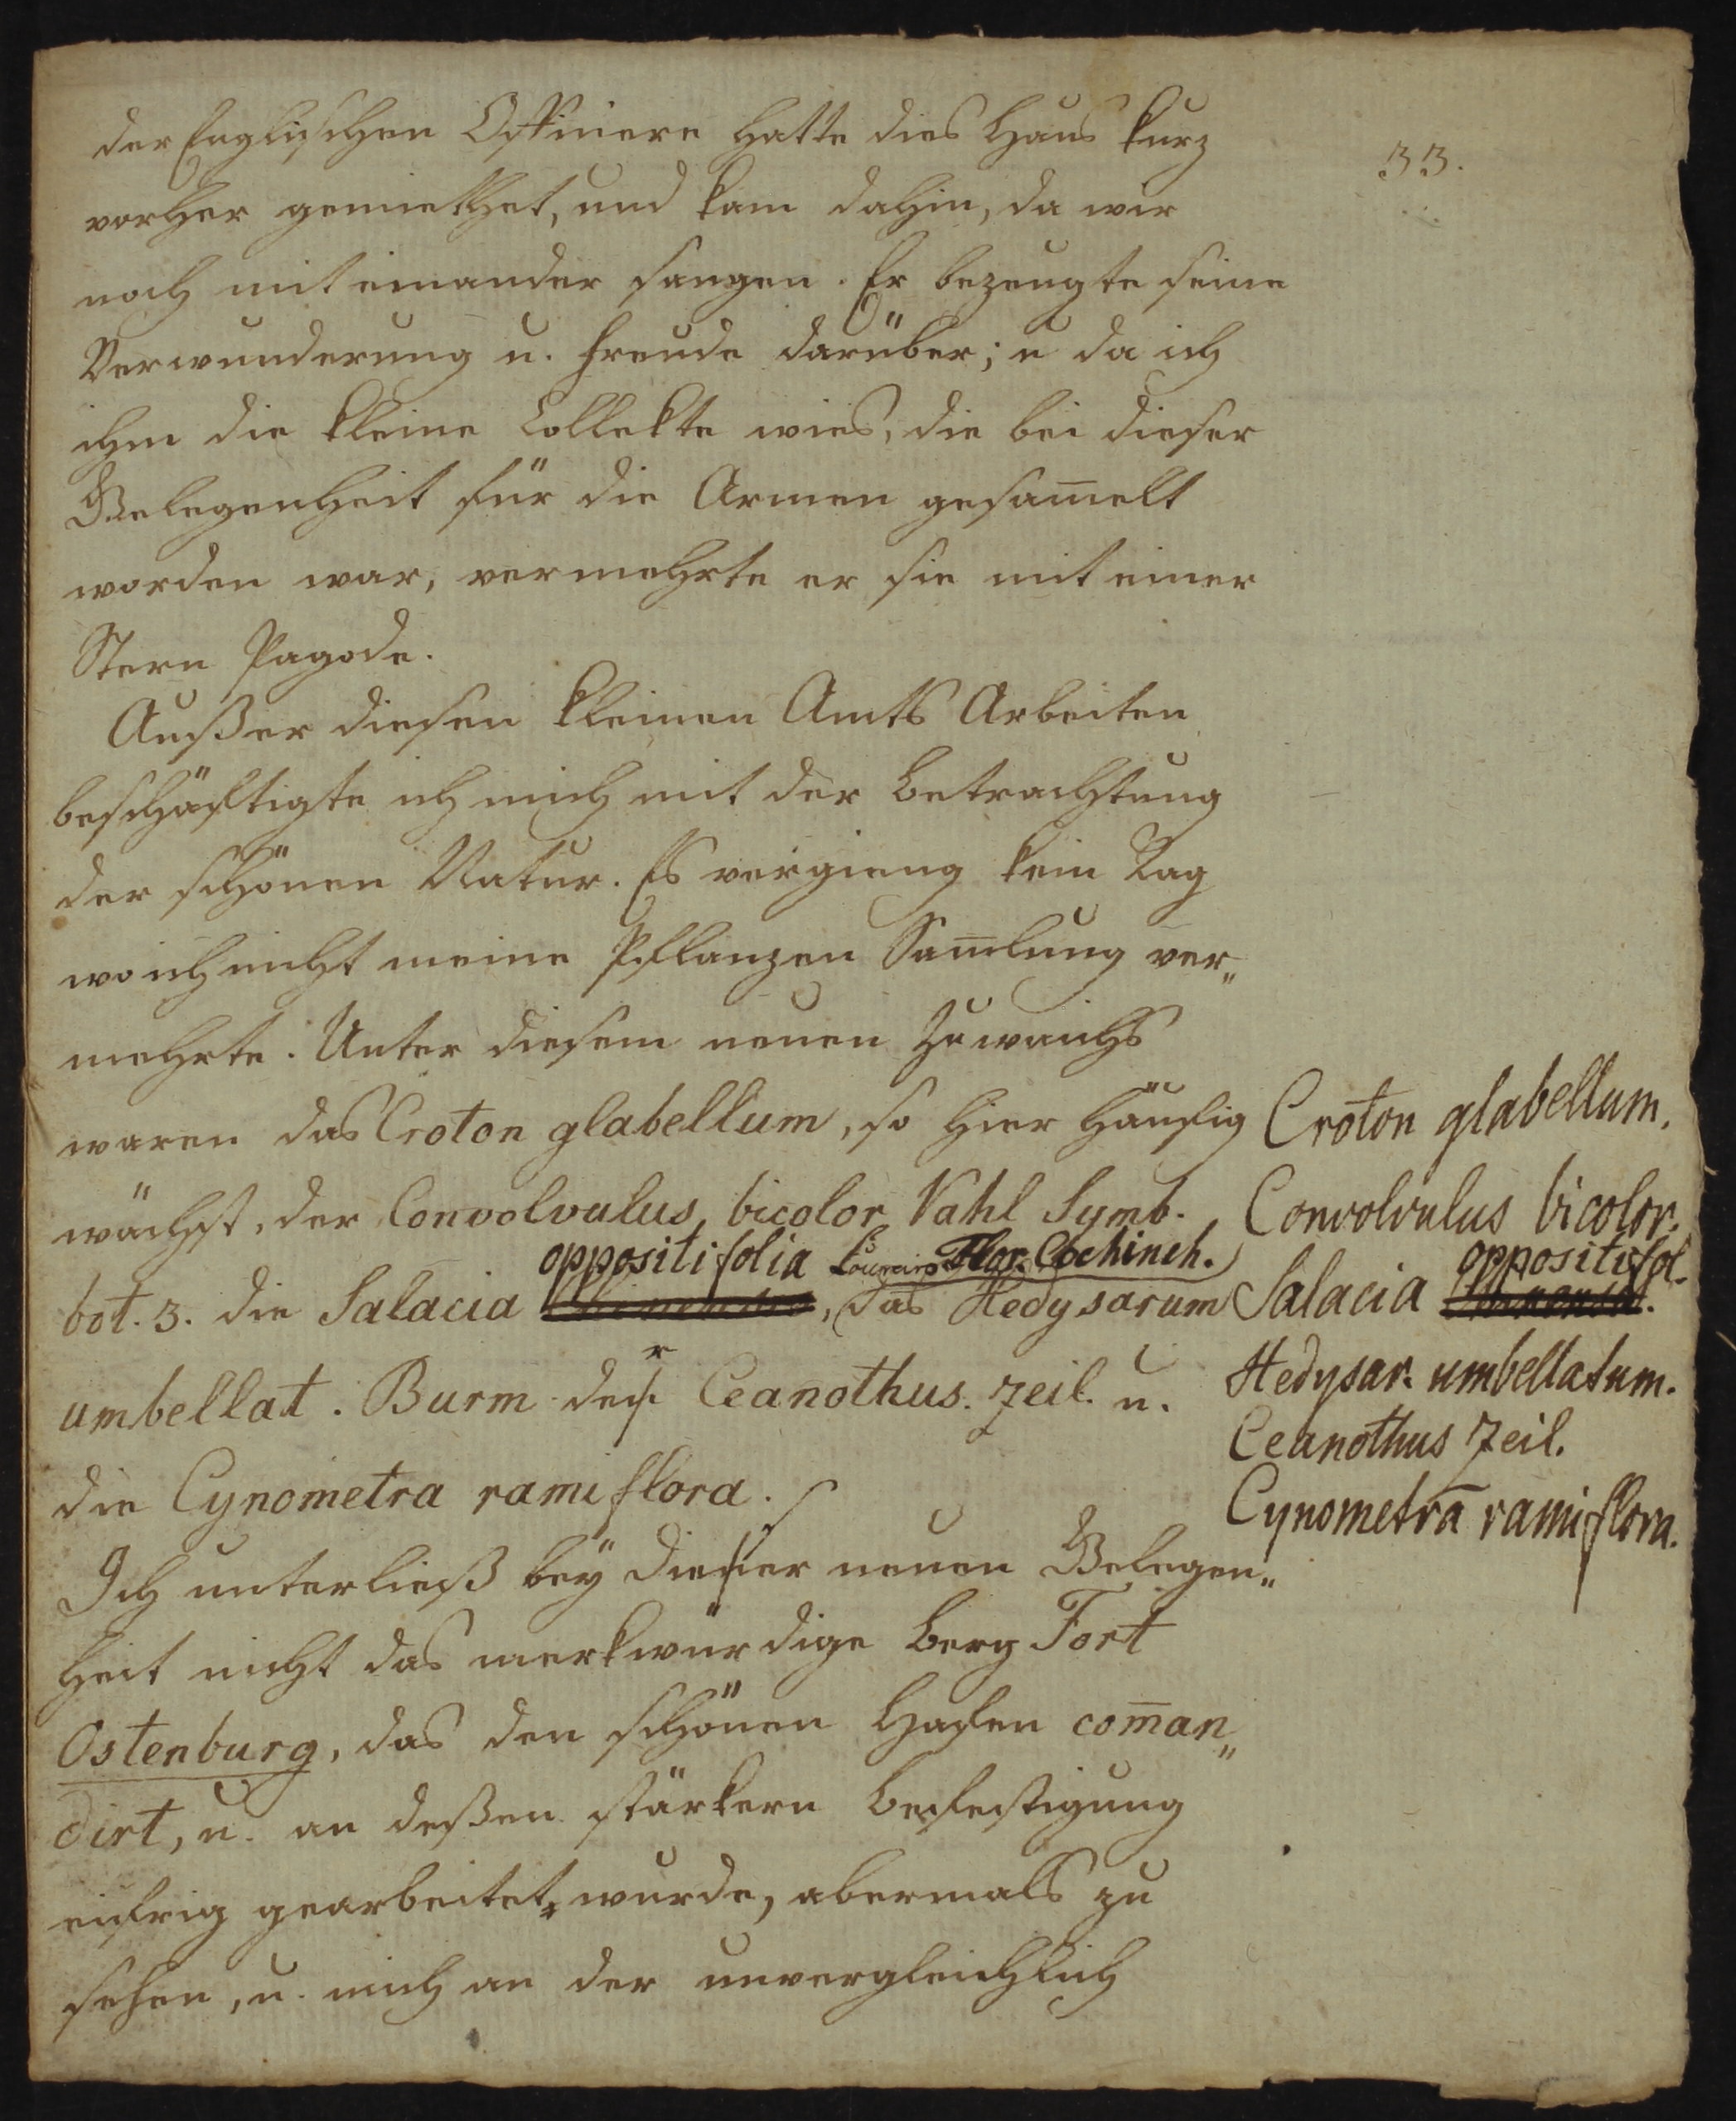 33.
der Englischen Officiere hatte dies Haus kurz
vorher gemiethet, und kam dahin, da wir
noch mit einander sangen. Er bezeugte seine
Verwunderung u. Freude darüber; u da ich
ihm die kleine Collekte wies, die bei dieser
Gelegenheit für die Armen gesam̅elt
worden war, vermehrte er sie mit einer
Stern Pagode.
Außer diesen kleinen Amts Arbeiten
beschäftigte ich mich mit der Betrachtung
der schönen Natur. Es vergieng kein Tag
wo ich nicht meine Pflanzen Sam̅lung ver„
mehrte. Unter diesem neuen Zuwachs
waren das Croton glabellum, so hier häufig
wächst, der Convolvulus bicolor Vahl Symb.
oppositifolia Loureiro Flor. Cochinch.
bot. 3. die Salacia , das Hedysarum
umbellat. Burm der Ceanothus. Zeil. u.
die Cynometra ramiflora.
Ich unterließ bey dieser neuen Gelegen„
heit nicht das merkwürdige Berg Fort
Ostenburg, das den schönen Hafen com̅an„
dirt, u. an deßen stärkern Befestigung
eifrig gearbeitet wurde, abermals zu
sehen, u. mich an der unvergleichlich
Croton glabellum.
Convolvulus bicolor.
oppositifol.
Salacia
Hedysar. umbellatum.
Ceanothus Zeil.
Cynometra ramiflora.